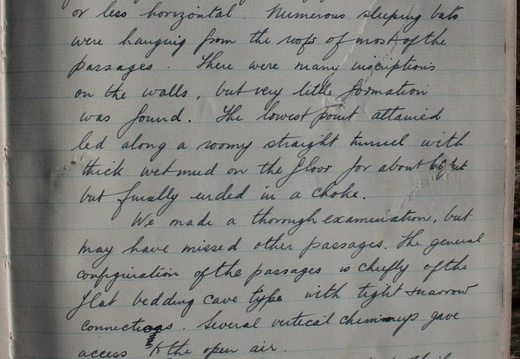 or less horizontal. Numerous sleeping bats
were hanging from the roofs of most of the
passages. There were many inscriptions
on the walls, but very little formation
was found. The lowest point attained
led along a roomy straight tunnel with
thick wet mud on the floor for about
but finally ended in a choke.
We made a thorough examination, but
may have missed other passages. The general
configuration of the passages is chiefly of the
flat bedding cave type with tight & narrow
connections. Several vertical chimneys gave
access to the open air.